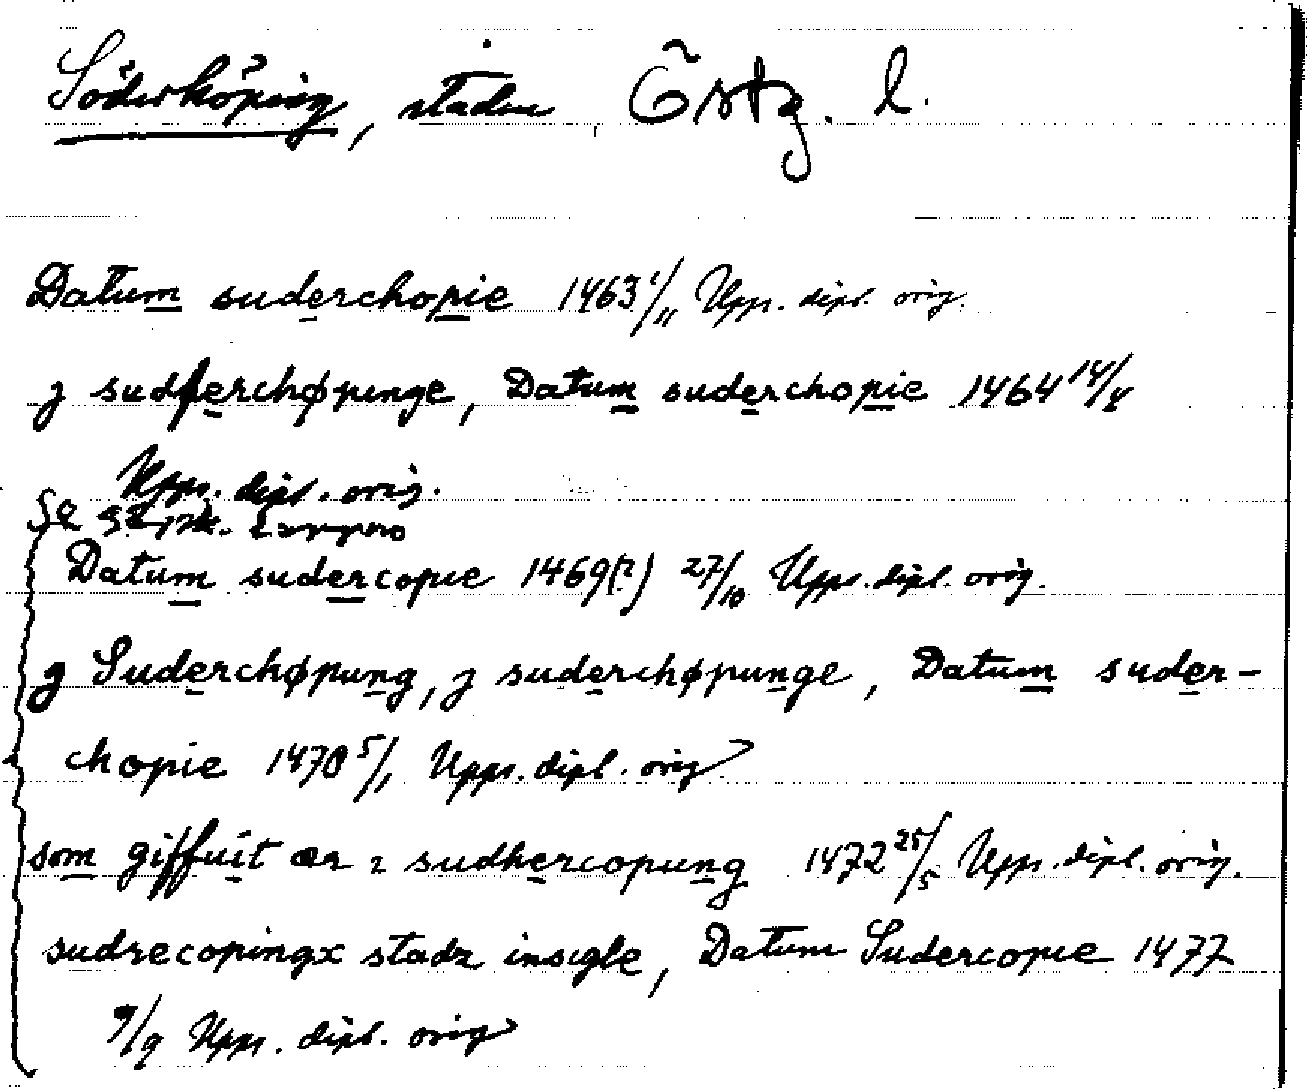 Söderköping, staden, Östg. l.
Datum suderchopie 1463 1/11 Upps. dipl. orig.
j sudherchøpunge, Datum suderchopie 1464 14/8
Upps. dipl. orig.
Se
Datum sudercopie 1469(?) 27/10 Upps. dipl. orig.
j Suderchøpung, j suderchøpunge, Datum suder-
chopie 1470 5/1 Upps. dipl. orig
som giffuit ær i sudhercopung 1472 25/5 Upps. dipl. orig.
sudrecopingx stadz insigle, Datum Sudercopie 1477
9/9 Upps. dipl. orig